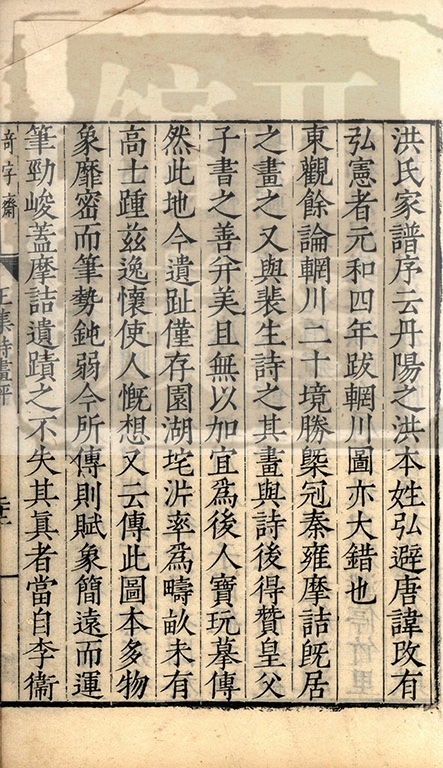 洪氏家譜序云丹陽之洪本姓弘避唐諱改有
弘憲者元和四年跋輞川圖亦大錯也
東觀餘論輞川二十境勝槩冠秦雍摩詰旣居
之畫之又與裴生詩之其畫與詩後得贊皇父
子書之善幷美且無以加宜爲後人寶玩摹傳
然此地今遺趾僅存園湖垞沜率爲疇畝未有
高士踵茲逸懷使人慨想又云傳此圖本多物
象靡密而筆勢鈍弱今所傳則賦象簡遠而運
筆勁峻蓋摩詰遺蹟之不失其眞者當自李衞
奇字齋
王集詩畫評